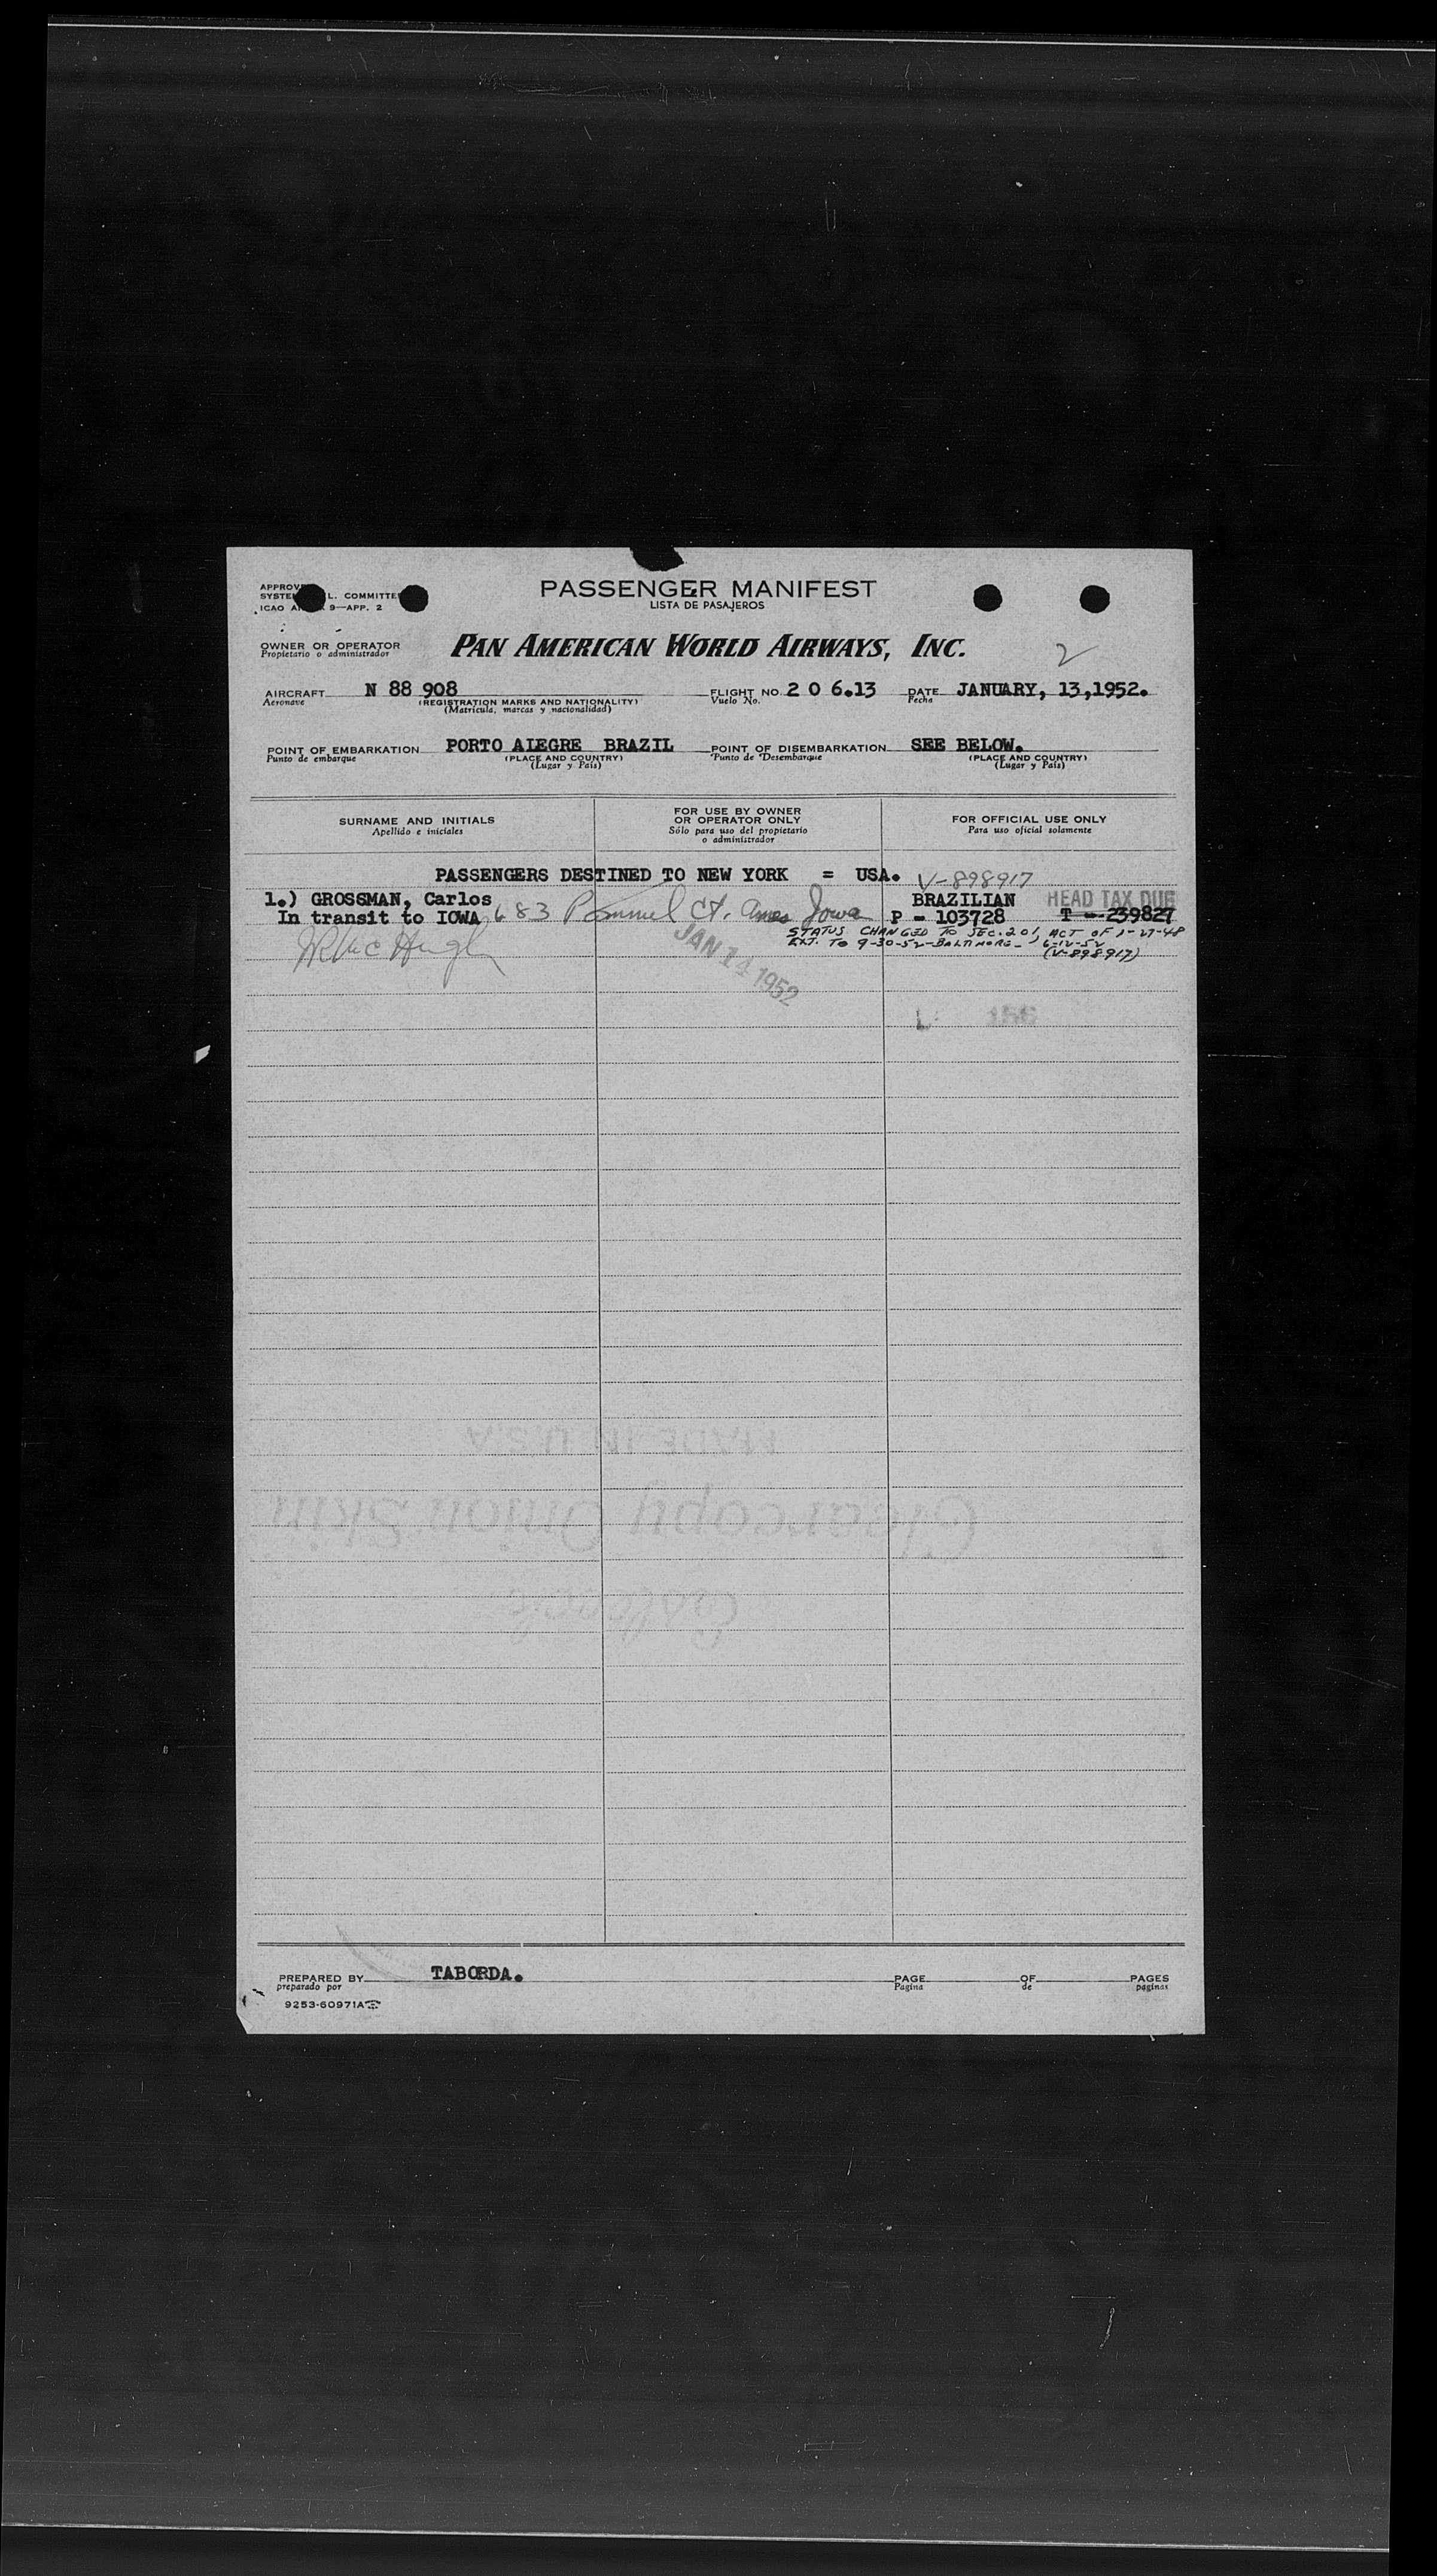 PASSENGER MANIFEST
LISTA DE PASAJEROS
L. COMMITTE
9—APP. 2
OWNER OR OPERATOR
Propietario o administrador
PAN AMERICAN WORLD AIRWAYS, INC.
2
AIRCRAFT N 88 908 FLIGHT NO. 2 0 6.13 DATE JANUARY, 13,1952.
Aeronave (REGISTRATION MARKS AND NATIONALITY) Vuelo No. Fecha
(Matrícula, marcas y nacionalidad)
POINT OF EMBARKATION PORTO ALEGRE BRAZIL POINT OF DISEMBARKATION SEE BELOW.
Punto de embarque (PLACE AND COUNTRY) Punto de Desembarque (PLACE AND COUNTRY)
(Lugar y País) (Lugar y País)
SURNAME AND INITIALS
Apellido e iniciales
FOR USE BY OWNER
OR OPERATOR ONLY
Sólo para uso del propietario
o administrador
FOR OFFICIAL USE ONLY
Para uso oficial solamente
PASSENGERS DESTINED TO NEW YORK = USA. V-898917
1.) GROSSMAN, Carlos BRAZILIAN HEAD TAX DUE
In transit to IOWA 683 Pammel Ct. Ames Iowa P - 103728 T - 239827
STATUS CHANGED TO SEC. 201, ACT OF 1-27-48
EXT. TO 9-30-52-BALTIMORE- 6-12-52
(V-898917)
JAN 14 1952
MADE IN U.S.A.
Clearcopy Onion Skin
PREPARED BY TABORDA. PAGE OF PAGES
preparado por Pagina de paginas
9253-60971A